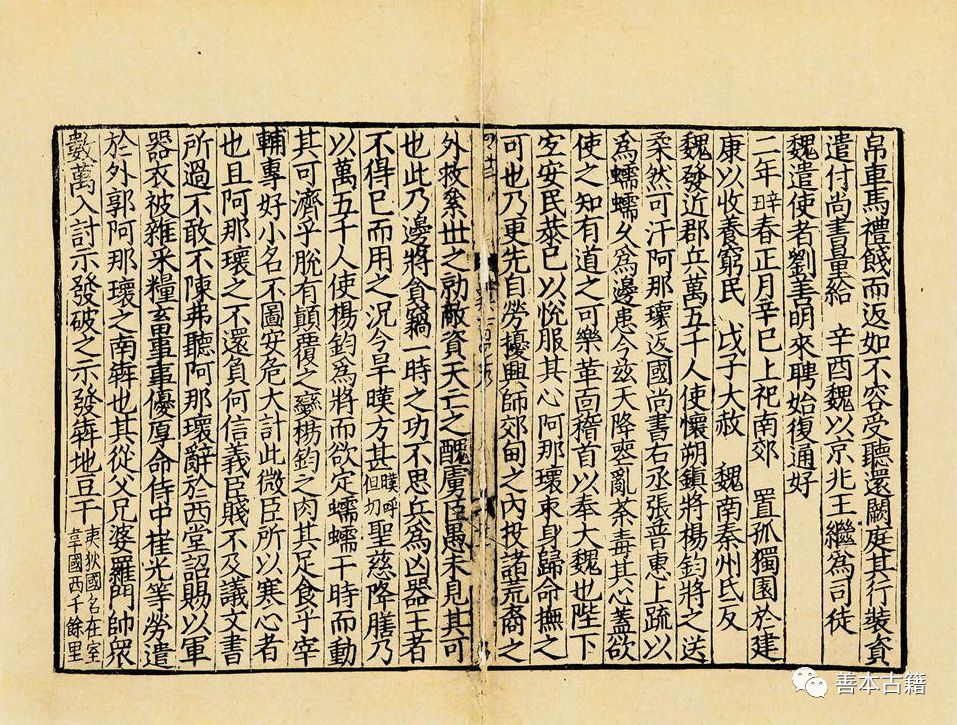 帛車馬禮餞而返如不容受聽還闕庭其行裝資
遣付尚書量給　辛酉魏以京兆王繼爲司徒
魏遣使者劉善明來聘始復通好
二年辛丑春正月辛巳上祀南郊　置孤獨園於建
康以收養窮民　戊子大赦　魏南秦州氐反
魏發近郡兵萬五千人使懷朔鎮將楊鈞將之送
柔然可汗阿那瓌返國尚書右丞張普惠上疏以
爲蠕蠕久爲邊患今茲天降喪亂荼毒其心蓋欲
使之知有道之可樂革面稽首以奉大魏也陛下
宜安民恭己以悅服其心阿那瓌束身歸命撫之
可也乃更先自勞擾興師郊甸之內投諸荒裔之
外救累世之勍敵資天亡之醜虜臣愚未見其可
也此乃邊將貪竊一時之功不思兵爲凶器王者
不得已而用之況今旱暵方甚暵呼但切聖慈降膳乃
以萬五千人使楊鈞爲將而欲定蠕蠕干時而動
其可濟乎脫有顛覆之變楊鈞之肉其足食乎宰
輔專好小名不圖安危大計此微臣所以寒心者
也且阿那瓌之不還負何信義臣賤不及議文書
所過不敢不陳弗聽阿那瓌辭於西堂詔賜以軍
器衣被雜采糧畜事事優厚命侍中崔光等勞遣
於外郭阿那瓌之南犇也其從父兄婆羅門帥眾
數萬入討示發破之示發犇地豆干夷狄國名在室韋國西千餘里
善本古籍